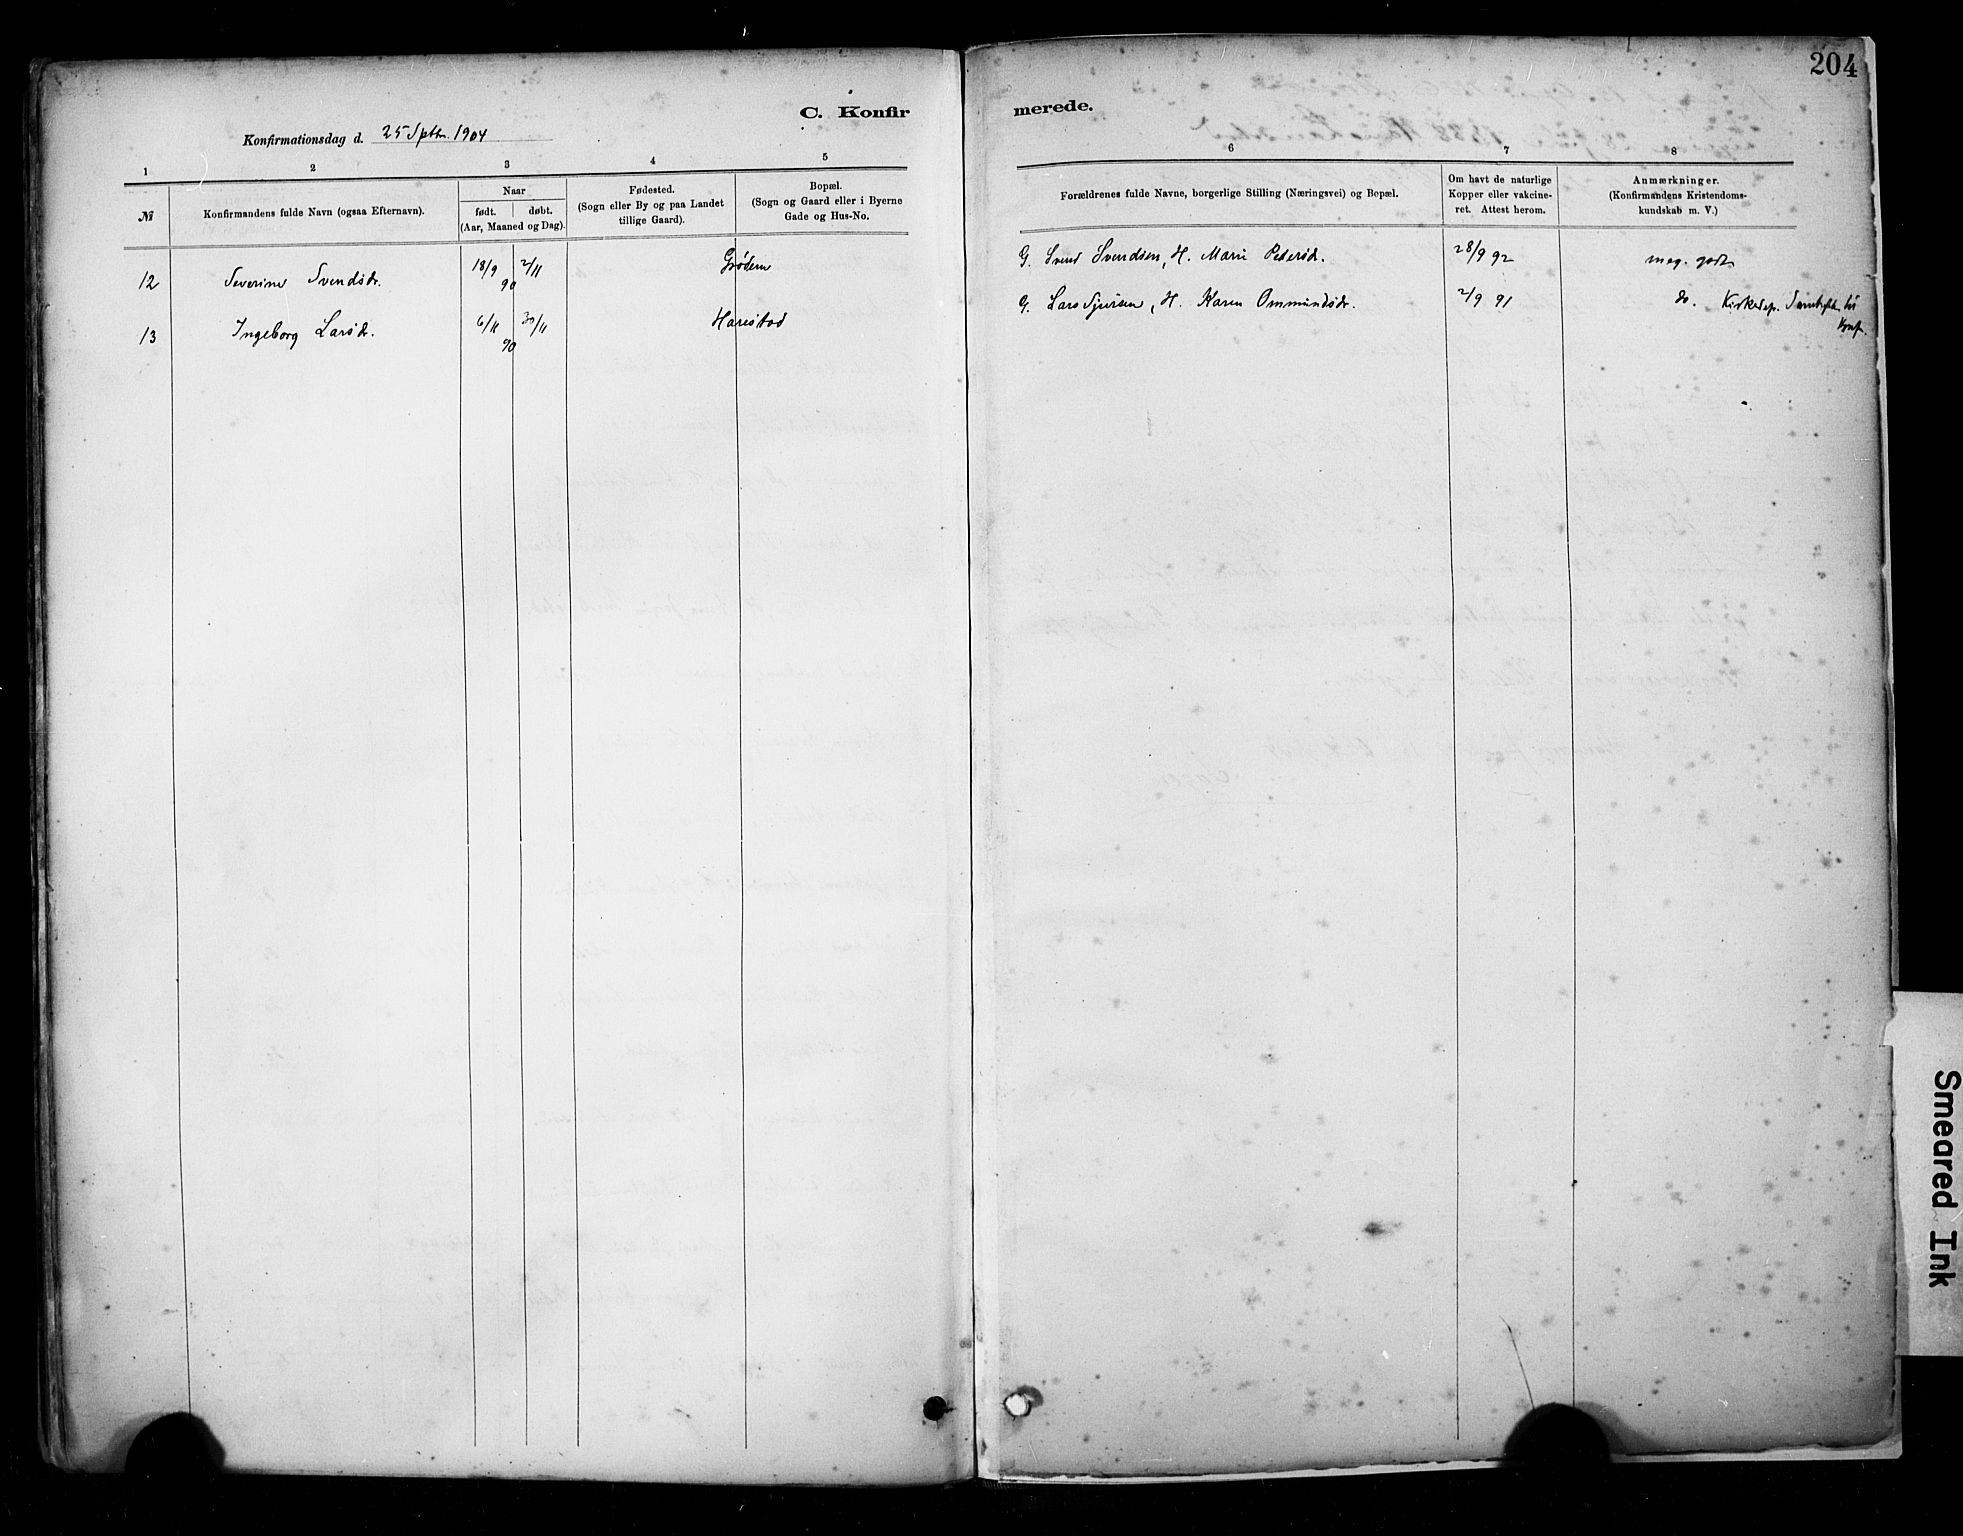 204
C. Konfir merede.
Konfirmationsdag d. 25 Septbr. 1904
1 2 3 4 5 6 7 8
№
Konfirmandens fulde Navn (ogsaa Efternavn).
Naar
født. døbt.
(Aar, Maaned og Dag).
Fødested.
(Sogn eller By og paa Landet
tillige Gaard).
Bopæl.
(Sogn og Gaard eller i Byerne
Gade og Hus-No.
Forældrenes fulde Navne, borgerlige Stilling (Næringsvei) og Bopæl.
Om havt de naturlige
Kopper eller vakcine-
ret. Attest herom.
Anmærkninger.
(Konfirmandens Kristendoms-
kundskab m. V.)
12 Severine Svendsdr. 18/9 90 2/11 Grødem G. Svend Svendsen, H. Marie Pedersdr. 28/9 92 meg. godt
13 Ingeborg Larsdr. 6/11 90 30/11 Harestad G. Lars Sjursen, H. Karen Ommundsdr. 2/9 91 do. Kirkedep. Samtykke til
Konf.
Smeared Ink